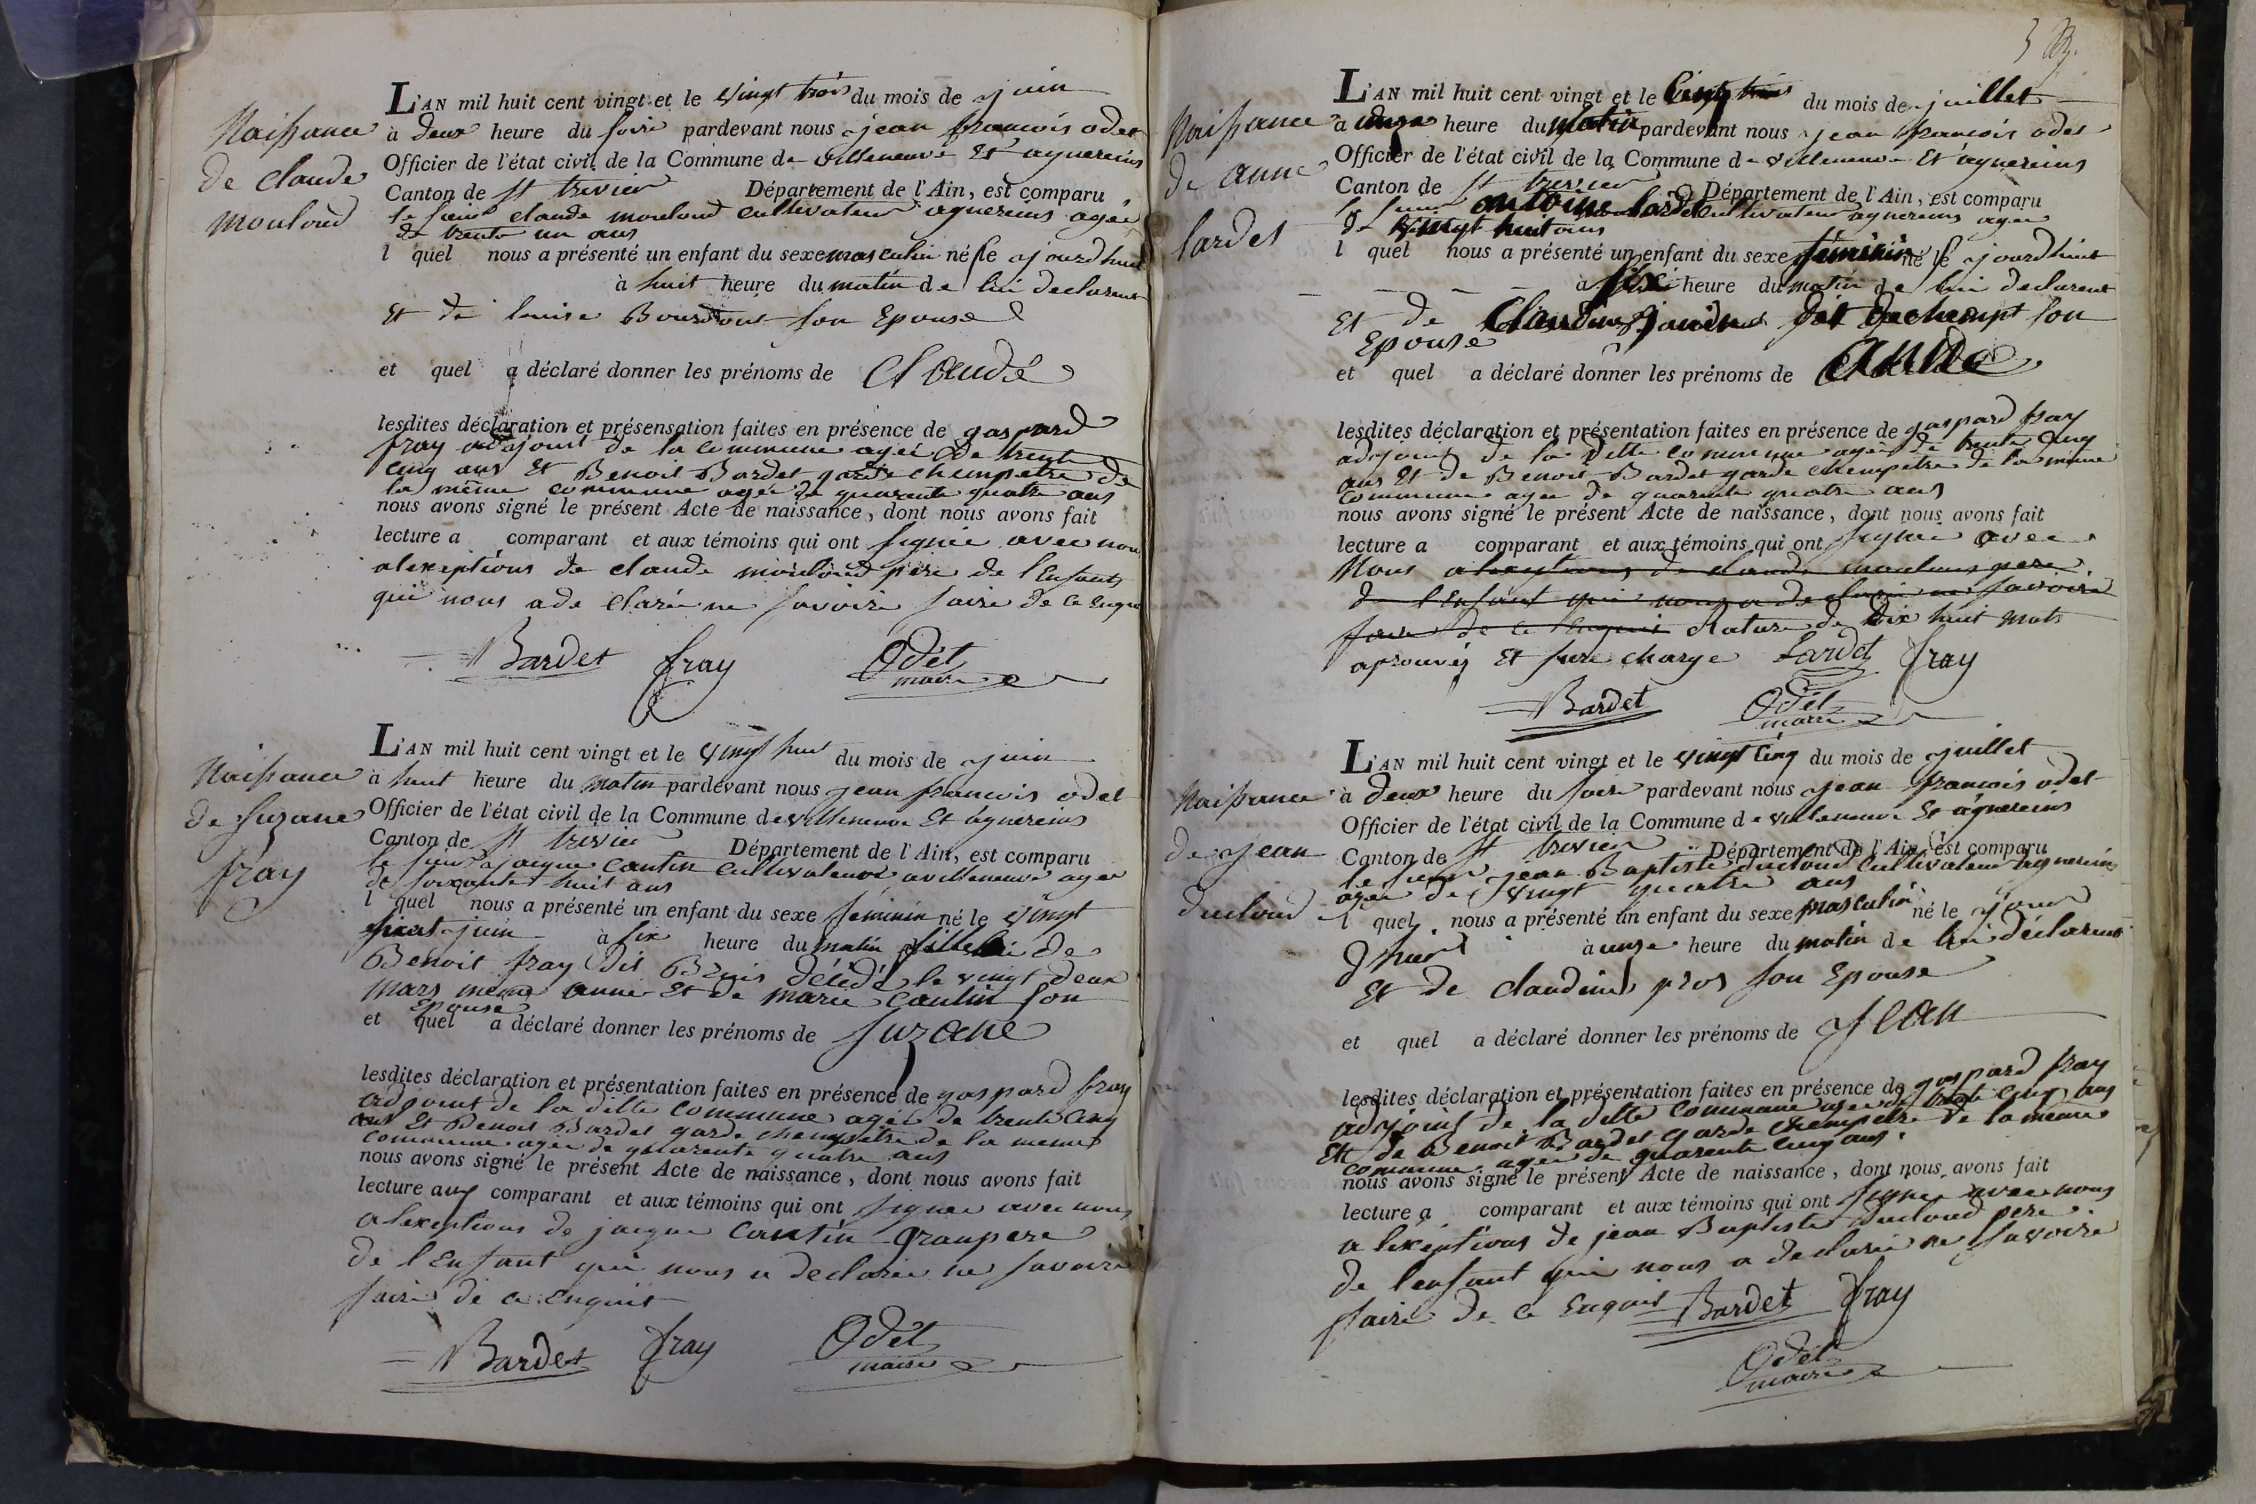 Naissance
de claude
mouloud
L'AN mil huit cent vingt et le vingt trois du mois de juin
à deux heure du soire pardevant nous jean francois odet
Officier de l'état civil de la Commune de villeneuve Et agnereins
Canton de St trivier Département de l'Ain, est comparu
le sieur claude mouloud cultivateur agnereins agée
de trente un ans
l quel nous a présenté un enfant du sexe masculin né le jourdhuit
à huit heure du matin de lui declarent
Et de louise son Epouse
et quel a déclaré donner les prénoms de Claude
lesdites déclaration et présensation faites en présence de gaspard
fray adjoint de la commune agée de trente
cinq ans Et Benoit Bardet garde chempetre de
la même commune agée de quarente quatre ans
nous avons signé le présent Acte de naissance, dont nous avons fait
lecture a comparant et aux témoins qui ont signée avec nous
alexeptions de claude mouloud père de l'Enfant
qui nous a de clarée ne savoire faire de ce
Bardet fray Odet
maire
Naissance
de suzane
fray
L'AN mil huit cent vingt et le vingt huit du mois de juin
à huit heure du matin pardevant nous jean francois odet
Officier de l'état civil de la Commune de villeneuve Et agnereins
Canton de St trivier Département de l'Ain, est comparu
le sieur jacque cantin cultivateur a villeneuve agée
de soixante huit ans
l quel nous a présenté un enfant du sexe féminin né le vingt
juin à six heure du matin fille de
Benoit fray dit décédé le vingt deux
mars même anne Et de marie cantin son
Epouse
et quel a déclaré donner les prénoms de suzane
lesdites déclaration et présentation faites en présence de gaspard fray
adjoint de la ditte commune agée de trente cinq
ans Et Benoit Bardet garde chempetre de la meme
commune agée de quarente quatre ans
nous avons signé le présent Acte de naissance, dont nous avons fait
lecture aux comparant et aux témoins qui ont signée avec nous
alexeptions de jacque cantin Granpere
de l'Enfant qui nous a declarée ne savoire
faire de ce Enquit
Bardet fray Odet
maire
Naissance
de anne
lardet
L'AN mil huit cent vingt et le vingt trois du mois de juillet
a onze heure du matin pardevant nous jean francois odet
Officier de l'état civil de la Commune de villeneuve Et agnereins
Canton de St trivier Département de l'Ain, est comparu
le sieur antoine lardet cultivateur agnereins agée
de vingt huit ans
l quel nous a présenté un enfant du sexe féminin né le jourdhuit
à six heure du matin de lui declarent
Et de Claudine dit son
Epouse
et quel a déclaré donner les prénoms de anne
lesdites déclaration et présentation faites en présence de gaspard fray
adjoint de la ditte commune agée de trente cinq
ans Et de Benoit Bardet garde chempetre de la même
commune agée de quarente quatre ans
nous avons signé le présent Acte de naissance, dont nous avons fait
lecture a comparant et aux témoins qui ont signée avec
Nous alexeptions de claude pere
de l'Enfant qui nous a declarée ne savoire
faire de ce Enquit Rature de dix huit mots
aprouvés Et sure charge Lardet fray
Bardet Odet
maire
Naissance
de jean
ducloud
L'AN mil huit cent vingt et le vingt cinq du mois de juillet
à deux heure du soire pardevant nous jean francois odet
Officier de l'état civil de la Commune de villeneuve Et agnereins
Canton de St trivier Département de l'Ain, est comparu
le sieur jean Baptiste ducloud cultivateur agnereins
agée de vingt quatre ans
l quel nous a présenté un enfant du sexe masculin né le jour
dhuit à onze heure du matin de lui déclarent
Et de claudine pros son Epouse
et quel a déclaré donner les prénoms de jean
lesdites déclaration et présentation faites en présence de gaspard fray
adjoint de la ditte commune agée de trente cinq ans
Et de Benoit Bardet garde chempetre de la même
commune agée de quarente cinq ans.
nous avons signé le présent Acte de naissance, dont nous avons fait
lecture a comparant et aux témoins qui ont signée avec nous
a lexeptions de jean Baptiste ducloud pere
de l'enfant qui nous a declarée ne savoire
faire de ce Enquit Bardet fray
Odet
maire